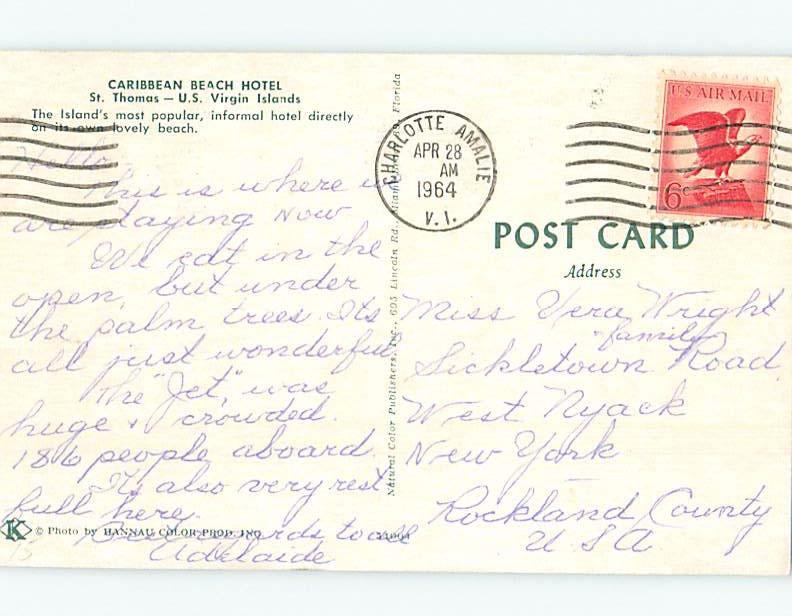 CARIBBEAN BEACH HOTEL
St. Thomas — U.S. Virgin Islands
The Island's most popular, informal hotel directly
on its own lovely beach.
Hello
This is where we
are staying now
We eat in the
open, but under
the palm trees. Its
all just wonderful
The "Jet", was
huge & crowded.
186 people aboard.
It, also very rest
full here.
regards to all
Adelaide
K © Photo by HANNAU COLOR PROD. INC.
Natural Color Publishers, Inc., 605 Lincoln Rd., Florida
CHARLOTTE AMALIE
APR 28
AM
1964
V.I.
U.S AIR MAIL
6c
POST CARD
Address
Miss Vera Wright
& family
Sickletown Road,
West Nyack
New York
Rockland County
U S A